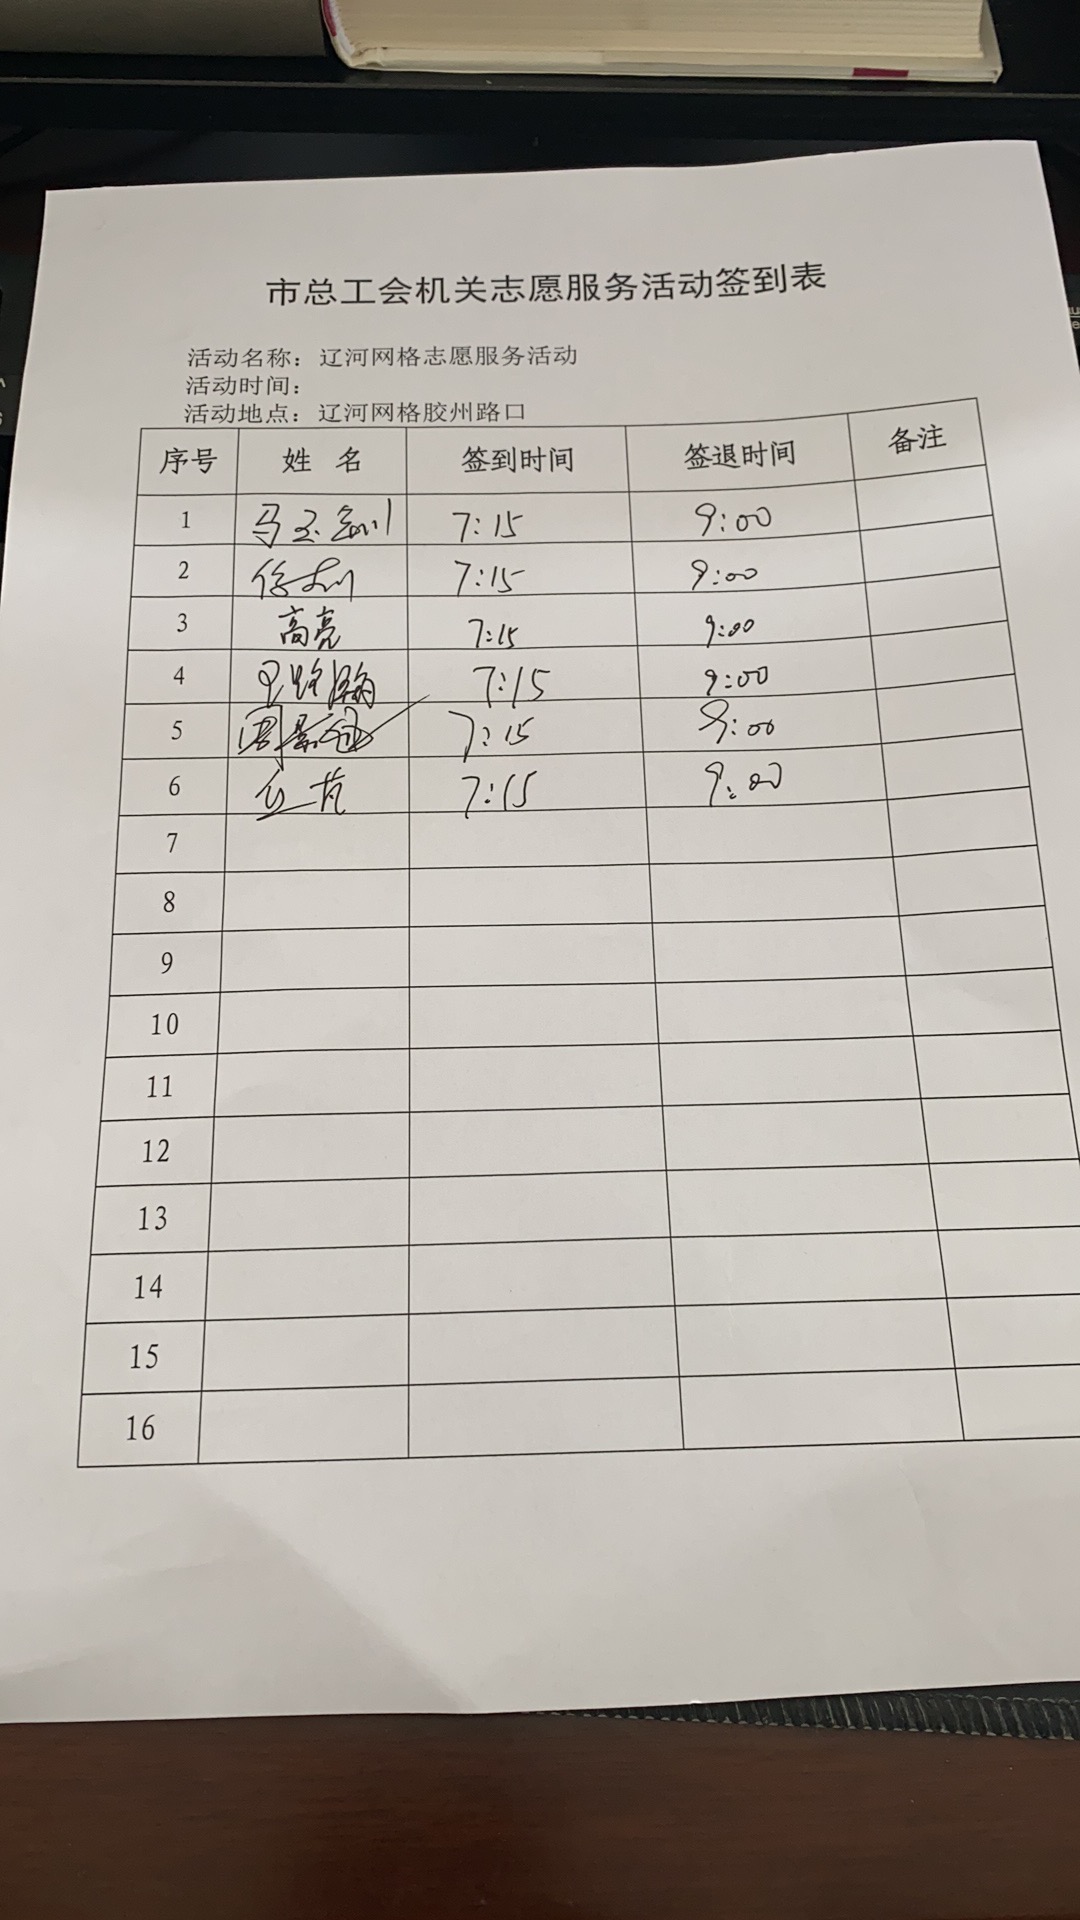 市总工会机关志愿服务活动签到表
活动名称：辽河网格志愿服务活动
活动时间：
活动地点：辽河网格胶州路口
序号 姓 名 签到时间 签退时间 备注
1 马玉 7:15 9:00
2 7:15 9:00
3 高亮 7:15 9:00
4 7:15 9:00
5 周 7:15 9:00
6 7:15 9:00
7
8
9
10
11
12
13
14
15
16